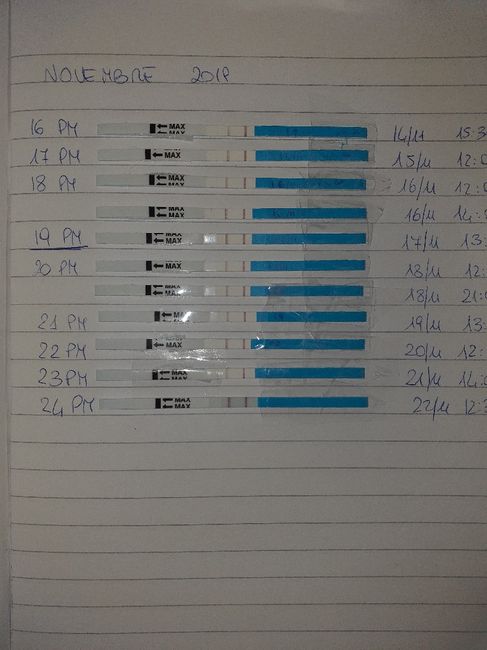 NOVEMBRE 2018
16 PM MAX MAX 14/11 15:3
17 PM MAX 15/11 12:0
18 PM MAX MAX 16/11 12:0
MAX MAX 16/11 14:
19 PM MAX MAX 17/11 13:
20 PM MAX 18/11 12:
MAX 18/11 21:0
21 PM MAX MAX 19/11 13:
22 PM MAX 20/11 12:
23 PM MAX MAX 21/11 14:0
24 PM MAX MAX 22/11 12:3